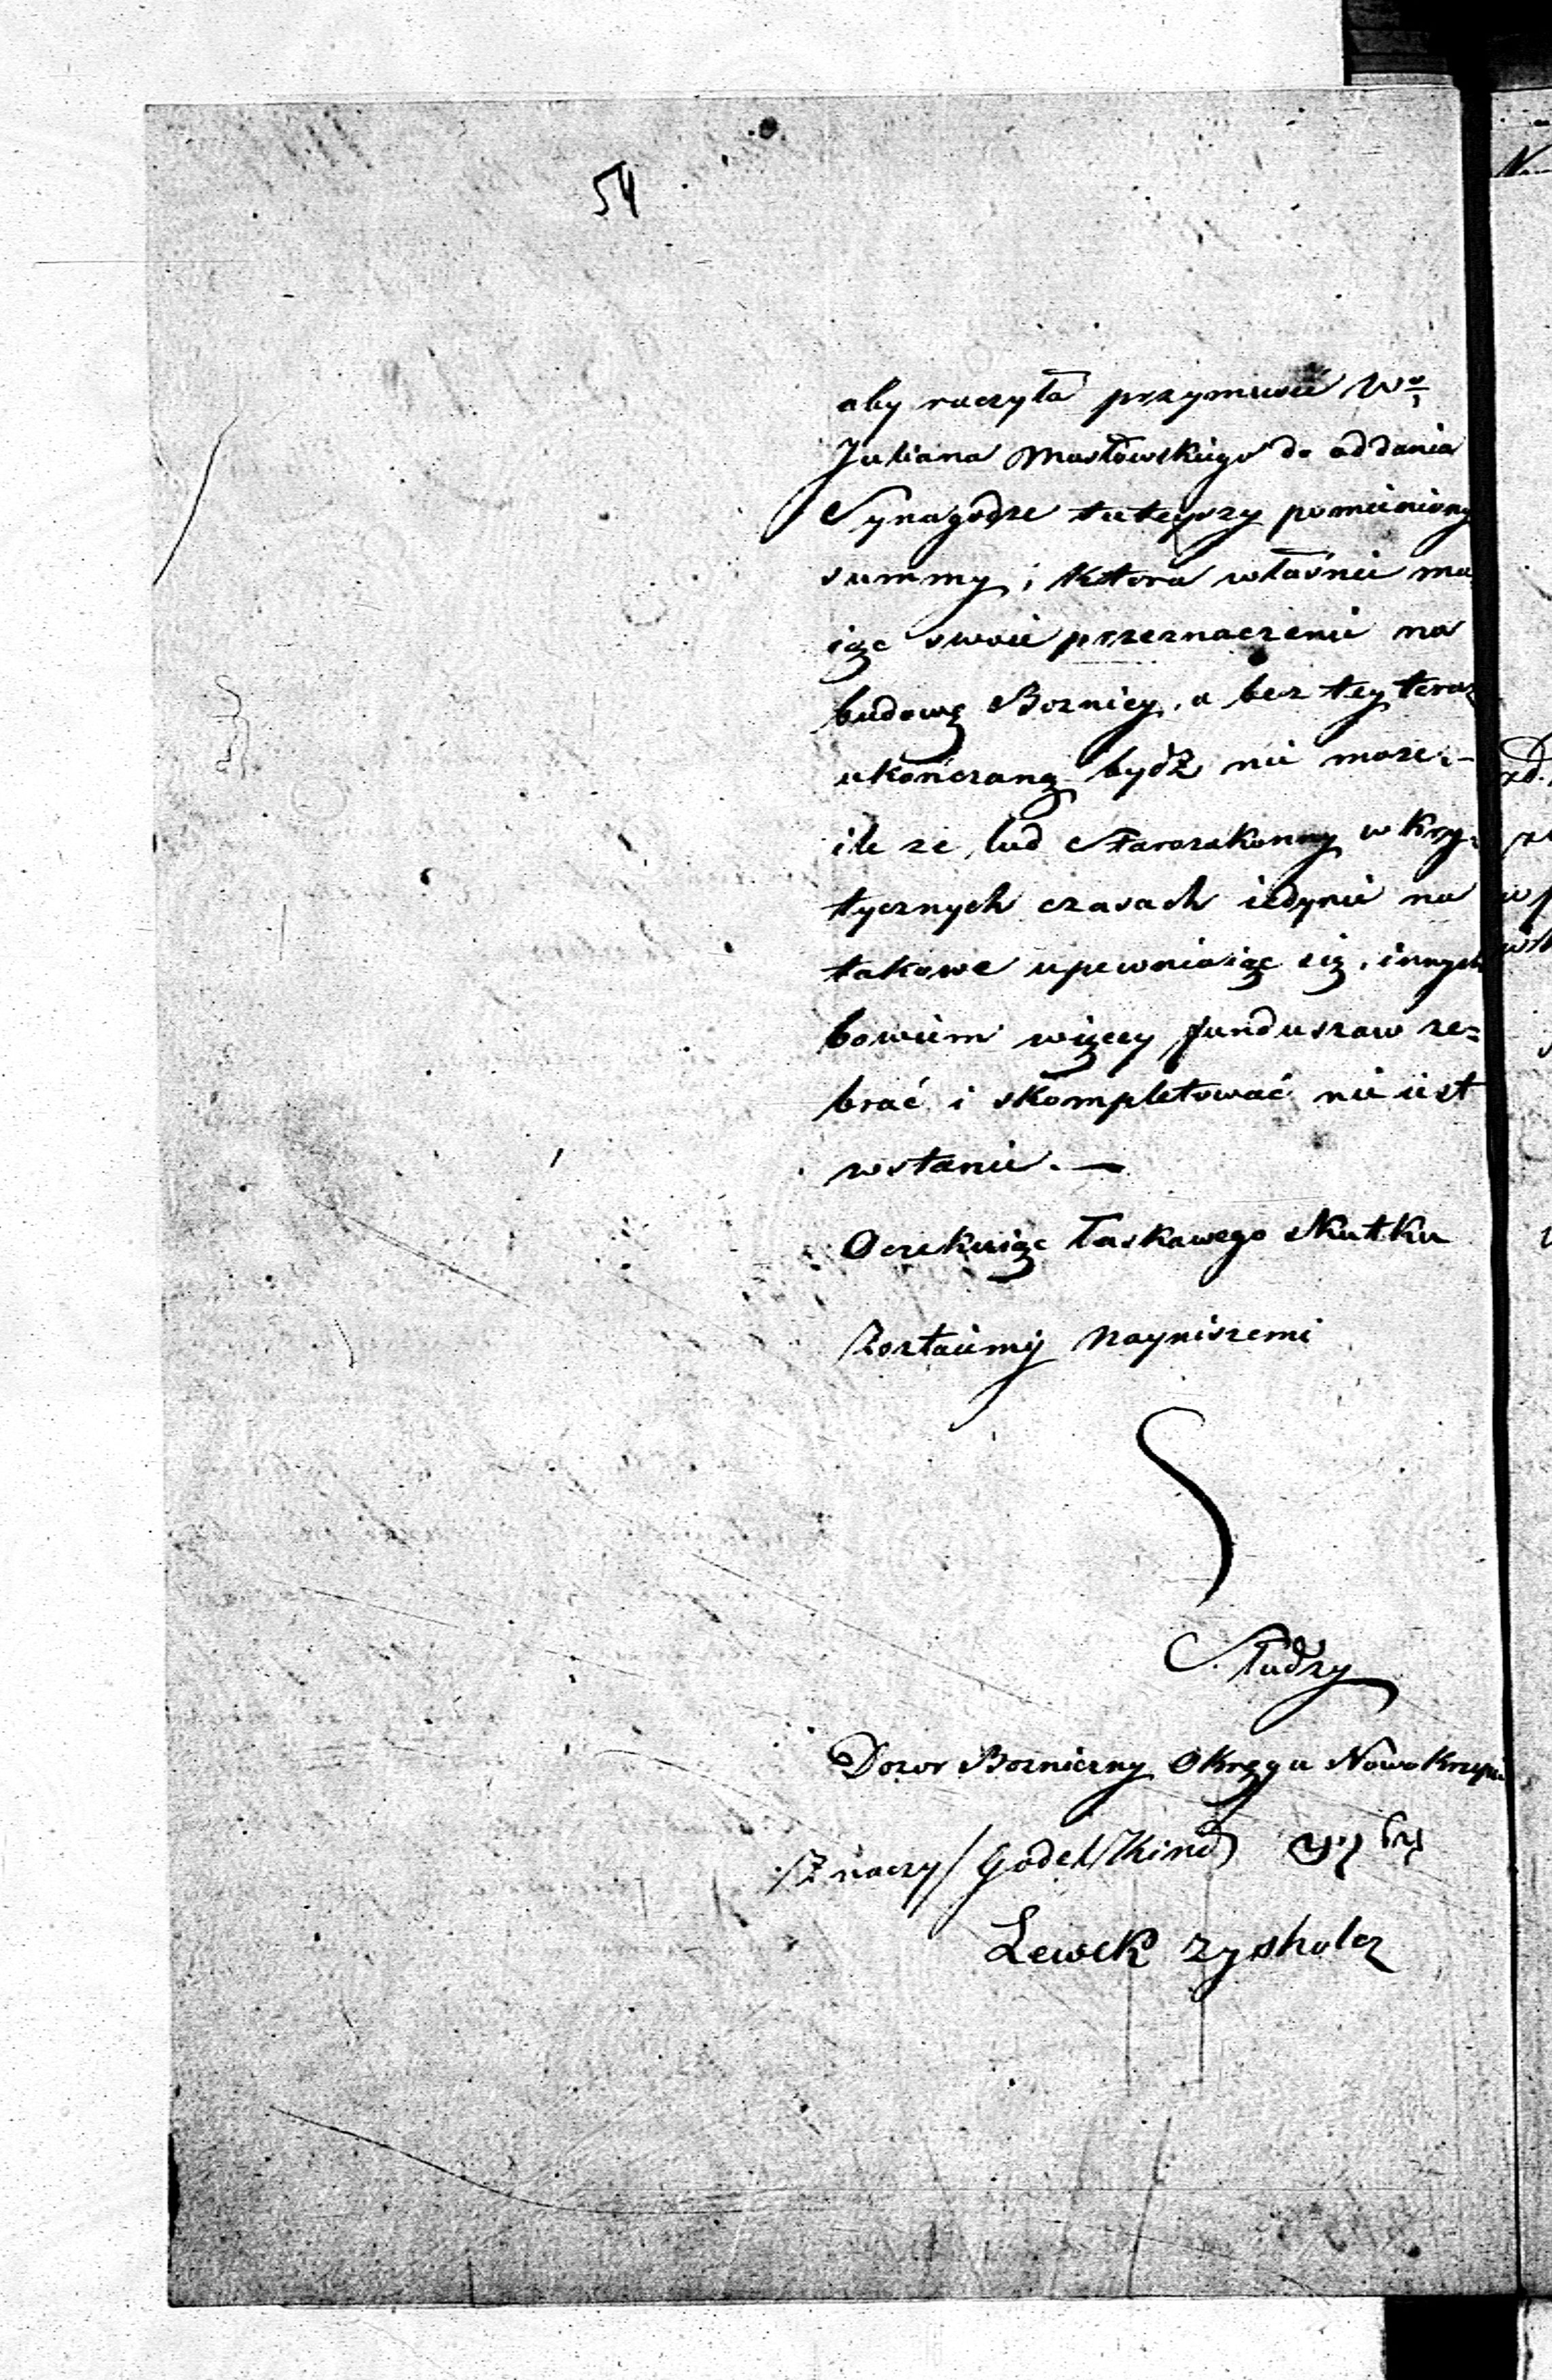 54
aby raczyła przymusić Wo
Juliana Masłowskiego do oddania
Synagodze tuteyszy pomienioney
summy, która właśnie ma
iąc swoie przeznaczenie na
budowę Boznicy, a bez tey teraz
ukończoną bydź nie może; -
ile ze lud Starozakonny w kry=
tycznych czasach iedynie na
takowe upewniaiąc się, innych
bowiem więcey funduszow ze=
brać i skompletować nie iest
wstanie. —
Oczekuiąc łaskawego skutku
Zostaiemy Nayniszemi
Słudzy
Dozor Bozniczny Okręgu Nowokrzepic
/Znaczy/ Godel Kind
Lewek Zysholcz